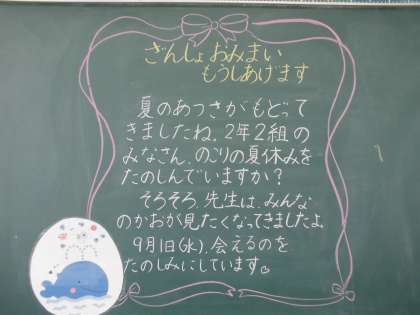 ざんしょおみまい
もうしあげます
夏のあつさがもどって
きましたね。2年2組の
みなさん、のこりの夏休みを
たのしんでいますか？
そろそろ、先生は、みんな
のかおが見たくなってきましたよ。
9月1日(水)、会えるのを
たのしみにしています。